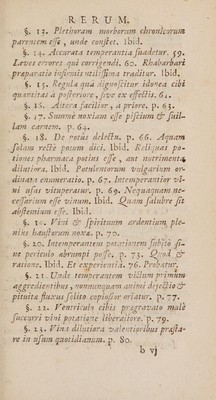 RERUM.
§. 13. Plethoram morborum chronicorum
parentem esse, unde constet. Ibid.
§. 14. Accurata temperantia suadetur. 59.
Leves errores qui corrigendi. 60. Rhabarbari
præparatio infirmis utilissima traditur. Ibid.
§. 15. Regula qua dignoscitur idonea cibi
quantitas a posteriore, sive ex effectis. 61.
§. 16. Altera facilior, a priore. p. 63.
§. 17. Summe noxiam esse piscium & suil-
lam carnem. p. 64.
§. 18. De potus delectu. p. 66. Aquam
solam recte potum dici. Ibid. Reliquas po-
tiones pharmaca potius esse, aut nutrimenta
dilutiora. Ibid. Potulentorum vulgarium or-
dinata enumeratio. p. 67. Intemperantior vi-
ni usus vituperatur. p. 69. Nequaquam ne-
cessarium esse vinum. Ibid. Quam salubre sit
abstemium esse. Ibid.
§. 19. Vini & spirituum ardentium ple-
nius haustorum noxæ. p. 70.
§. 20. Intemperantem potationem subito si-
ne periculo abrumpi posse. p. 73. Quod &
ratione. Ibid. Et experientia. 76. Probatur.
§. 21. Unde temperantem victum primum
aggredientibus, nonnunquam animi dejectio &
pituitæ fluxus solito copiosior oriatur. p. 77.
§. 22. Ventriculo cibis prægravato male
succurri vini potatione liberaliore. p. 79.
§. 23. Vina dilutiora valentioribus præsta-
re in usum quotidianum. p. 80.
b vj